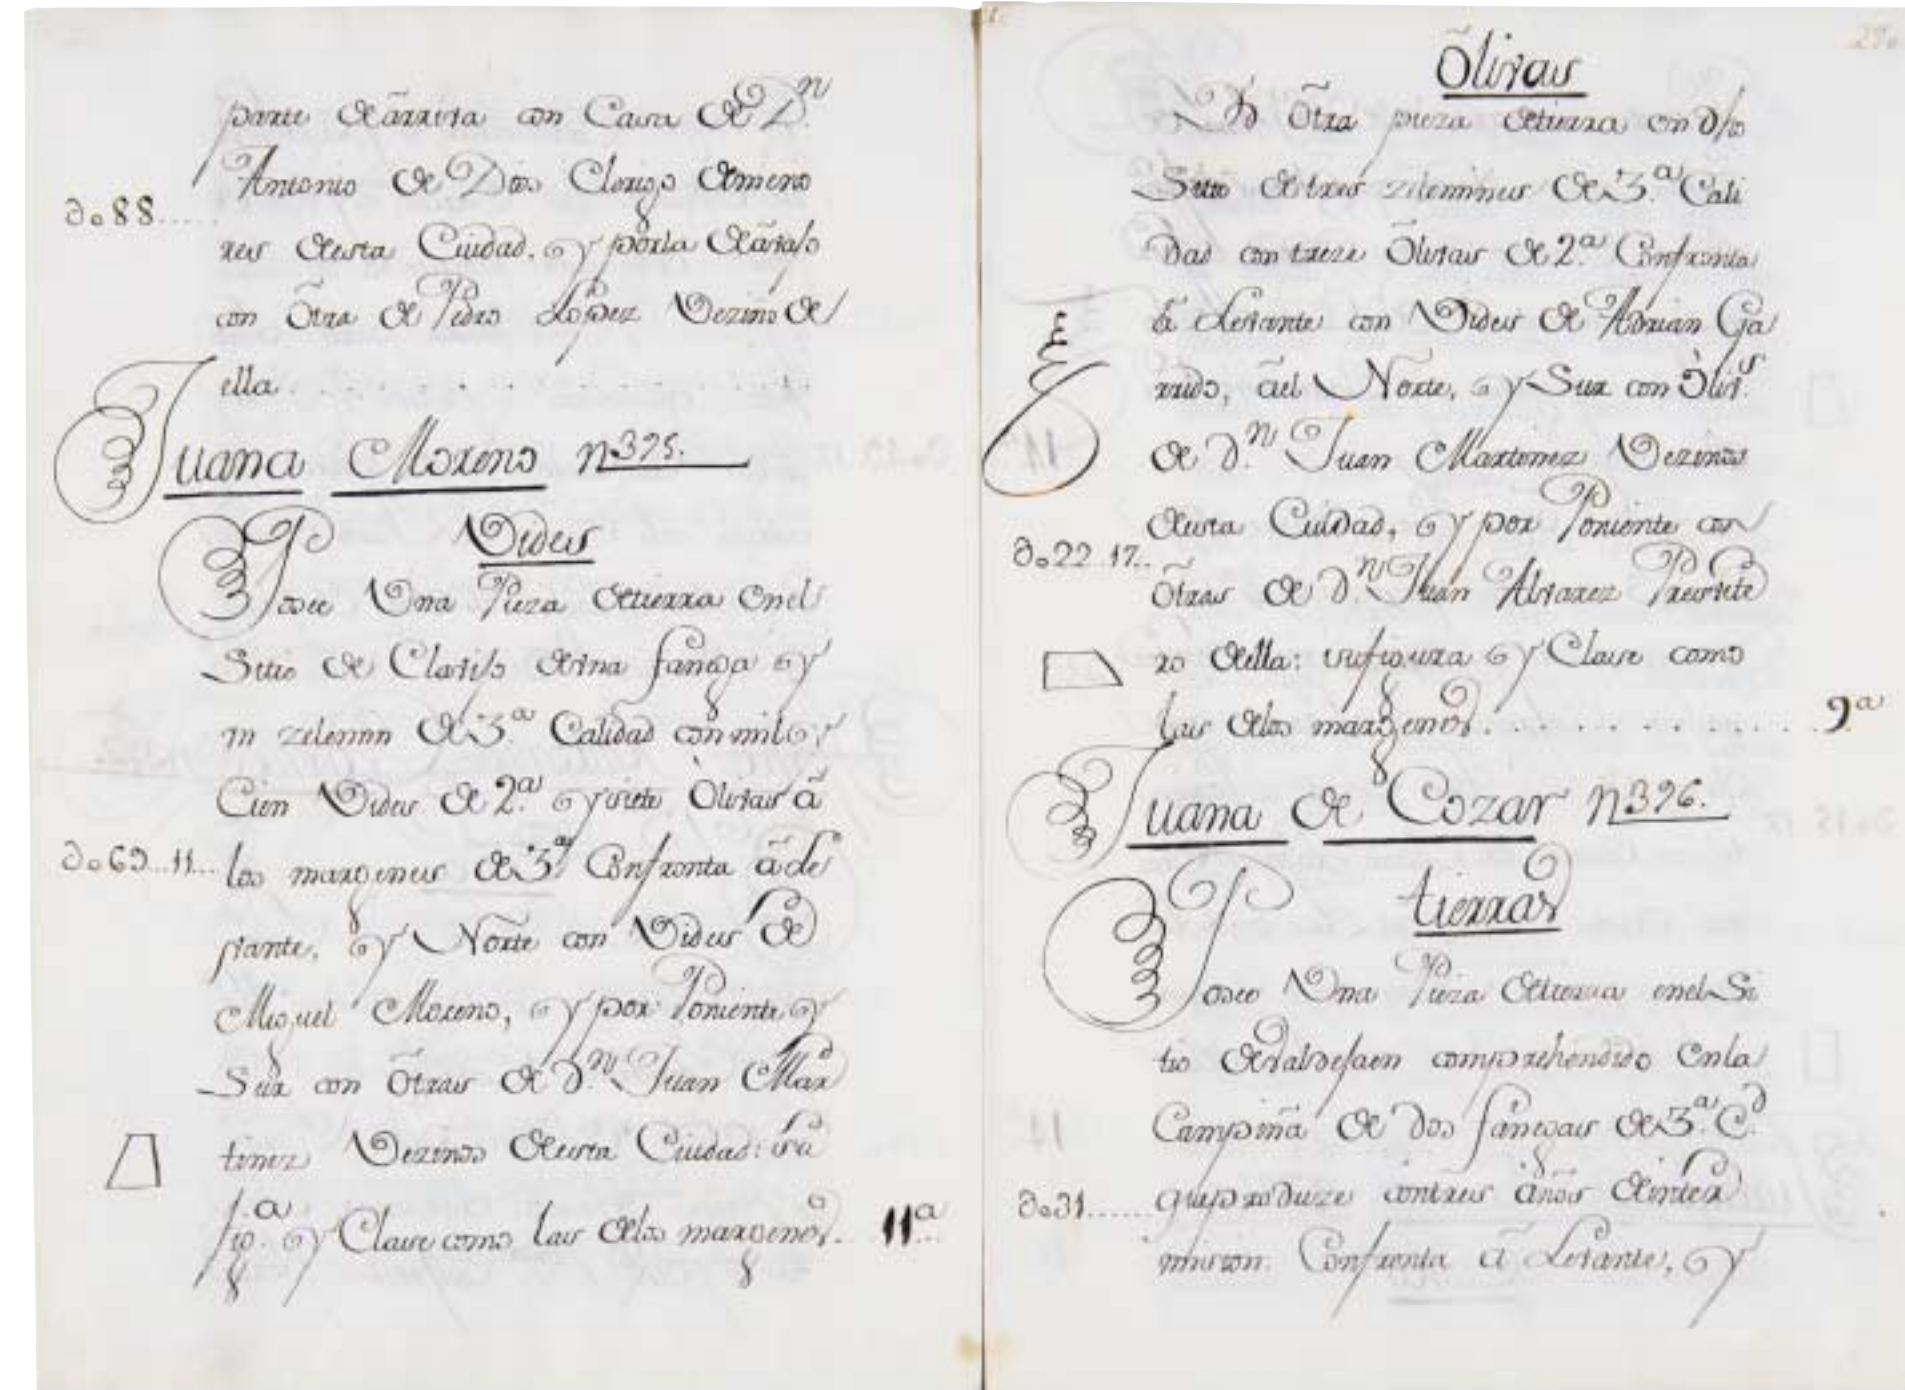 parte de ãrriva con Casa de D.n
Antonio de Dios Clerigo de meno
do88.....
res de esta Ciudad. y por la de ãvajo
con õtra de Pedro Lopez Vezino de
ella. . . . . . . . . .
Juana Moreno n 395.
Vides
Posee Una Pieza de tierra en el
Sitio de Clavijo de vna fanega y
vn zelemin de 3.a Calidad con mil y
Cien Vides de 2.a y siete Olivas ã
do69..11... los margenes de 3.a Confronta ã Le
vante, y Norte con Vides de
Miguel Moreno, y por Poniente y
Sur con õtras de d.n Juan Mar
tinez Vezinos de esta Ciudad: su
fig.a y Clase como las de los margenes. 11a
Õlivas
Yd õtra pieza de tierra en dho
Sitio de tres zelemines de 3.a Cali
dad con treze Õlivas de 2.a Confronta
ã Levante con Vides de Adrian Ga
rrido, ãel Norte, y Sur con Oliv.s
de d.n Juan Martinez Vezinos
de esta Ciudad, y por Poniente con
do22..17..
õtras de d.n Juan Alvarez Presvite
ro de ella: su figura y Clase como
las de los margenes. . . . . . . . . . . 9a
Juana de Cozar n 396.
tierras
Posee Una Pieza de tierra en el Si
tio de Valdejaen comprehendido en la
Campiña de dos fanegas de 3.a C.d
do31...... que produze con tres años de inter
mision. Confronta ã Levante, y